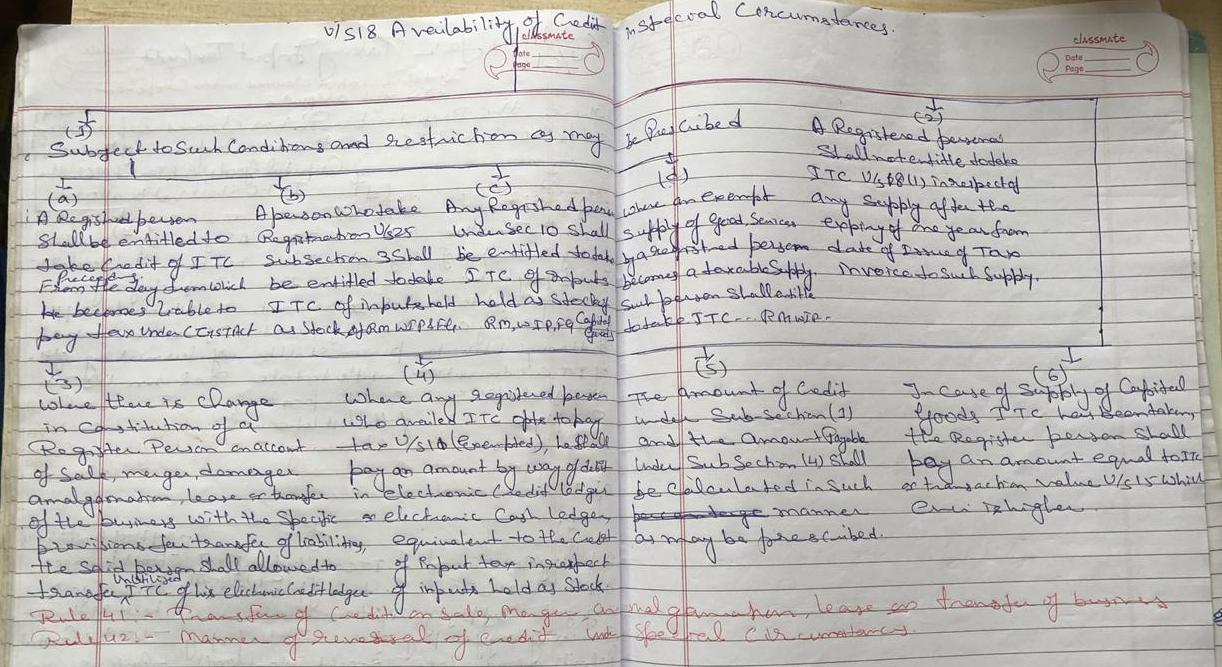 U/S18 Availability of Credit in Special Circumstances.
classmate
Date
Page
classmate
Date
Page
(1)
Subject to Such Conditions and restriction as may be Prescribed
(a)
A Registred person
Shall be entitled to
take Credit of ITC
Preceding
From the day from which
he becomes liable to
pay tax under CGSTAct
(b)
A person who take
Registration U/S25
Subsection 3 Shall
be entitled to take
ITC of inputs held
as Stock of RM WIP & FG.
(c)
Any Registred person
under Sec 10 Shall
be entitled to take
ITC of Inputs
held as Stock of
RM, WIP, FG Capital
goods
(d)
where an exempt
supply of Good, Services
by a registred person
becomes a taxable Supply
such person Shall entitle
to take ITC-- RM WIP-
(2)
A Registered personal
Shall not entitle to take
ITC U/S18(1) in respect of
any supply after the
expiry of one year from
date of Issue of Tax
invoice to such Supply.
(3)
Where there is Change
in Constitution of a
Register Person on account
of Sale, merger, demerger
amalgamation, lease or transfer
of the business with the Specific
provisions for transfer of liabilities,
the Said person Shall allowed to
Unutilised
transfer ITC of his electronic Credit ledger
(4)
Where any registered person
who availed ITC opts to pay
tax U/S10 (Exempted), he Shall
pay an amount by way of debit
in electronic Credit ledger
or electronic Cash ledger,
equivalent to the Credit
of input tax in respect
of inputs held as Stock.
(5)
The amount of Credit
under Sub-Section (1)
and the amount Payable
under Sub Section (4) Shall
be Calculated in Such
manner
as may be prescribed.
(6)
In Case of Supply of Capital
Goods ITC has been taken,
the Register person Shall
pay an amount equal to ITC
or transaction value U/S15 which
ever is higher
Rule 41:- Transfer of Credit on Sale, Merger, amalgamation, lease or transfer of business
Rule 42:- Manner of reversal of Credit under Special Circumstances.